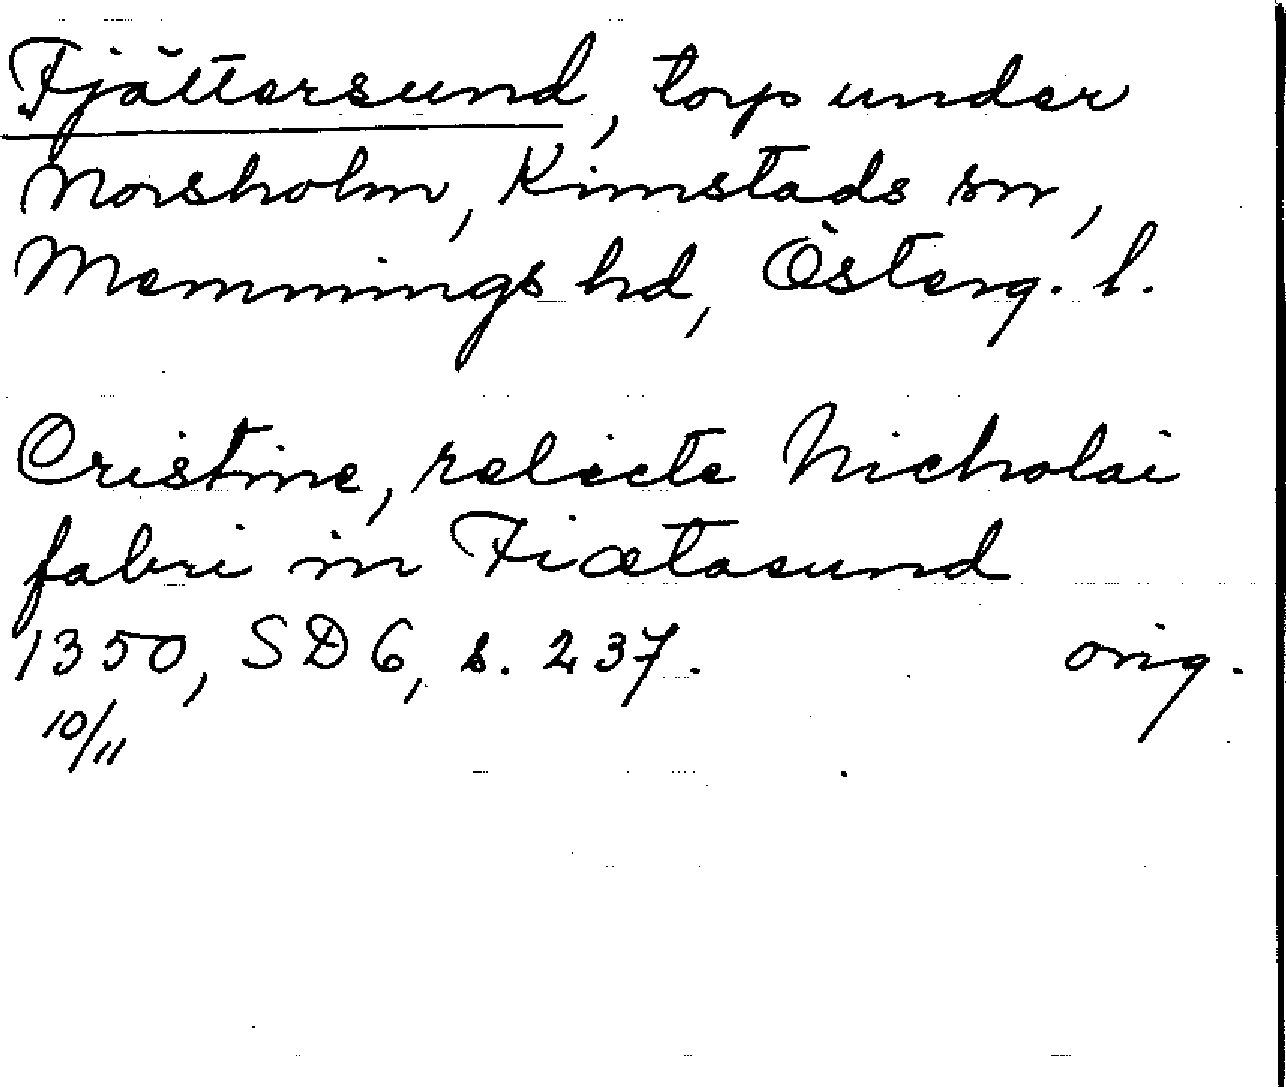 Fjättersund, torp under
Norsholm, Kimstads sn,
Memmings hd, Österg. l.
Cristine, relicte Nicholai
fabri in Fiætasund
1350, SD 6, s. 237. orig.
10/11